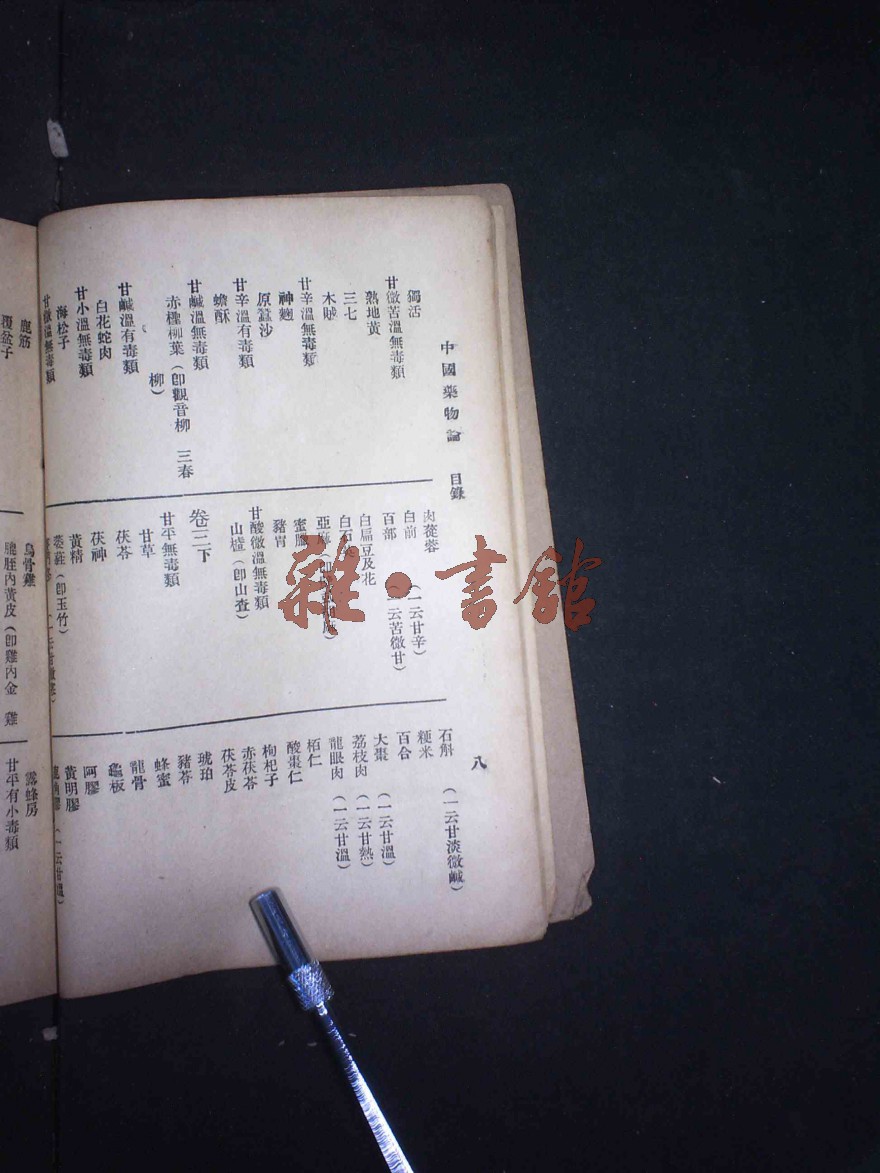 中國藥物論　目錄　八
獨活
甘微苦溫無毒類
熟地黃
三七
木賊
甘辛溫無毒類
神麴
原蠶沙
甘辛溫有毒類
蟾酥
甘鹹溫無毒類
赤檉柳葉（卽觀音柳　三春
柳）
甘鹹溫有毒類
白花蛇肉
甘小溫無毒類
海松子
甘微溫無毒類
肉蓯蓉
白前　（一云甘辛）
百部　（一云苦微甘）
白扁豆及花
白石
亞麻
蜜臘
豬胃
甘酸微溫無毒類
山樝（卽山査）
卷三下
甘平無毒類
甘草
茯苓
茯神
黃精
萎蕤（卽玉竹）
石斛　（一云甘淡微鹹）
粳米
百合
大棗　（一云甘溫）
荔枝肉　（一云甘熱）
龍眼肉　（一云甘溫）
柏仁
酸棗仁
枸杞子
赤茯苓
茯苓皮
琥珀
豬苓
蜂蜜
龍骨
龜板
阿膠
黃明膠
鹿筋
覆盆子
烏骨雞
膍胵內黃皮（卽雞內金　雞
露蜂房
甘平有小毒類
雜·書館